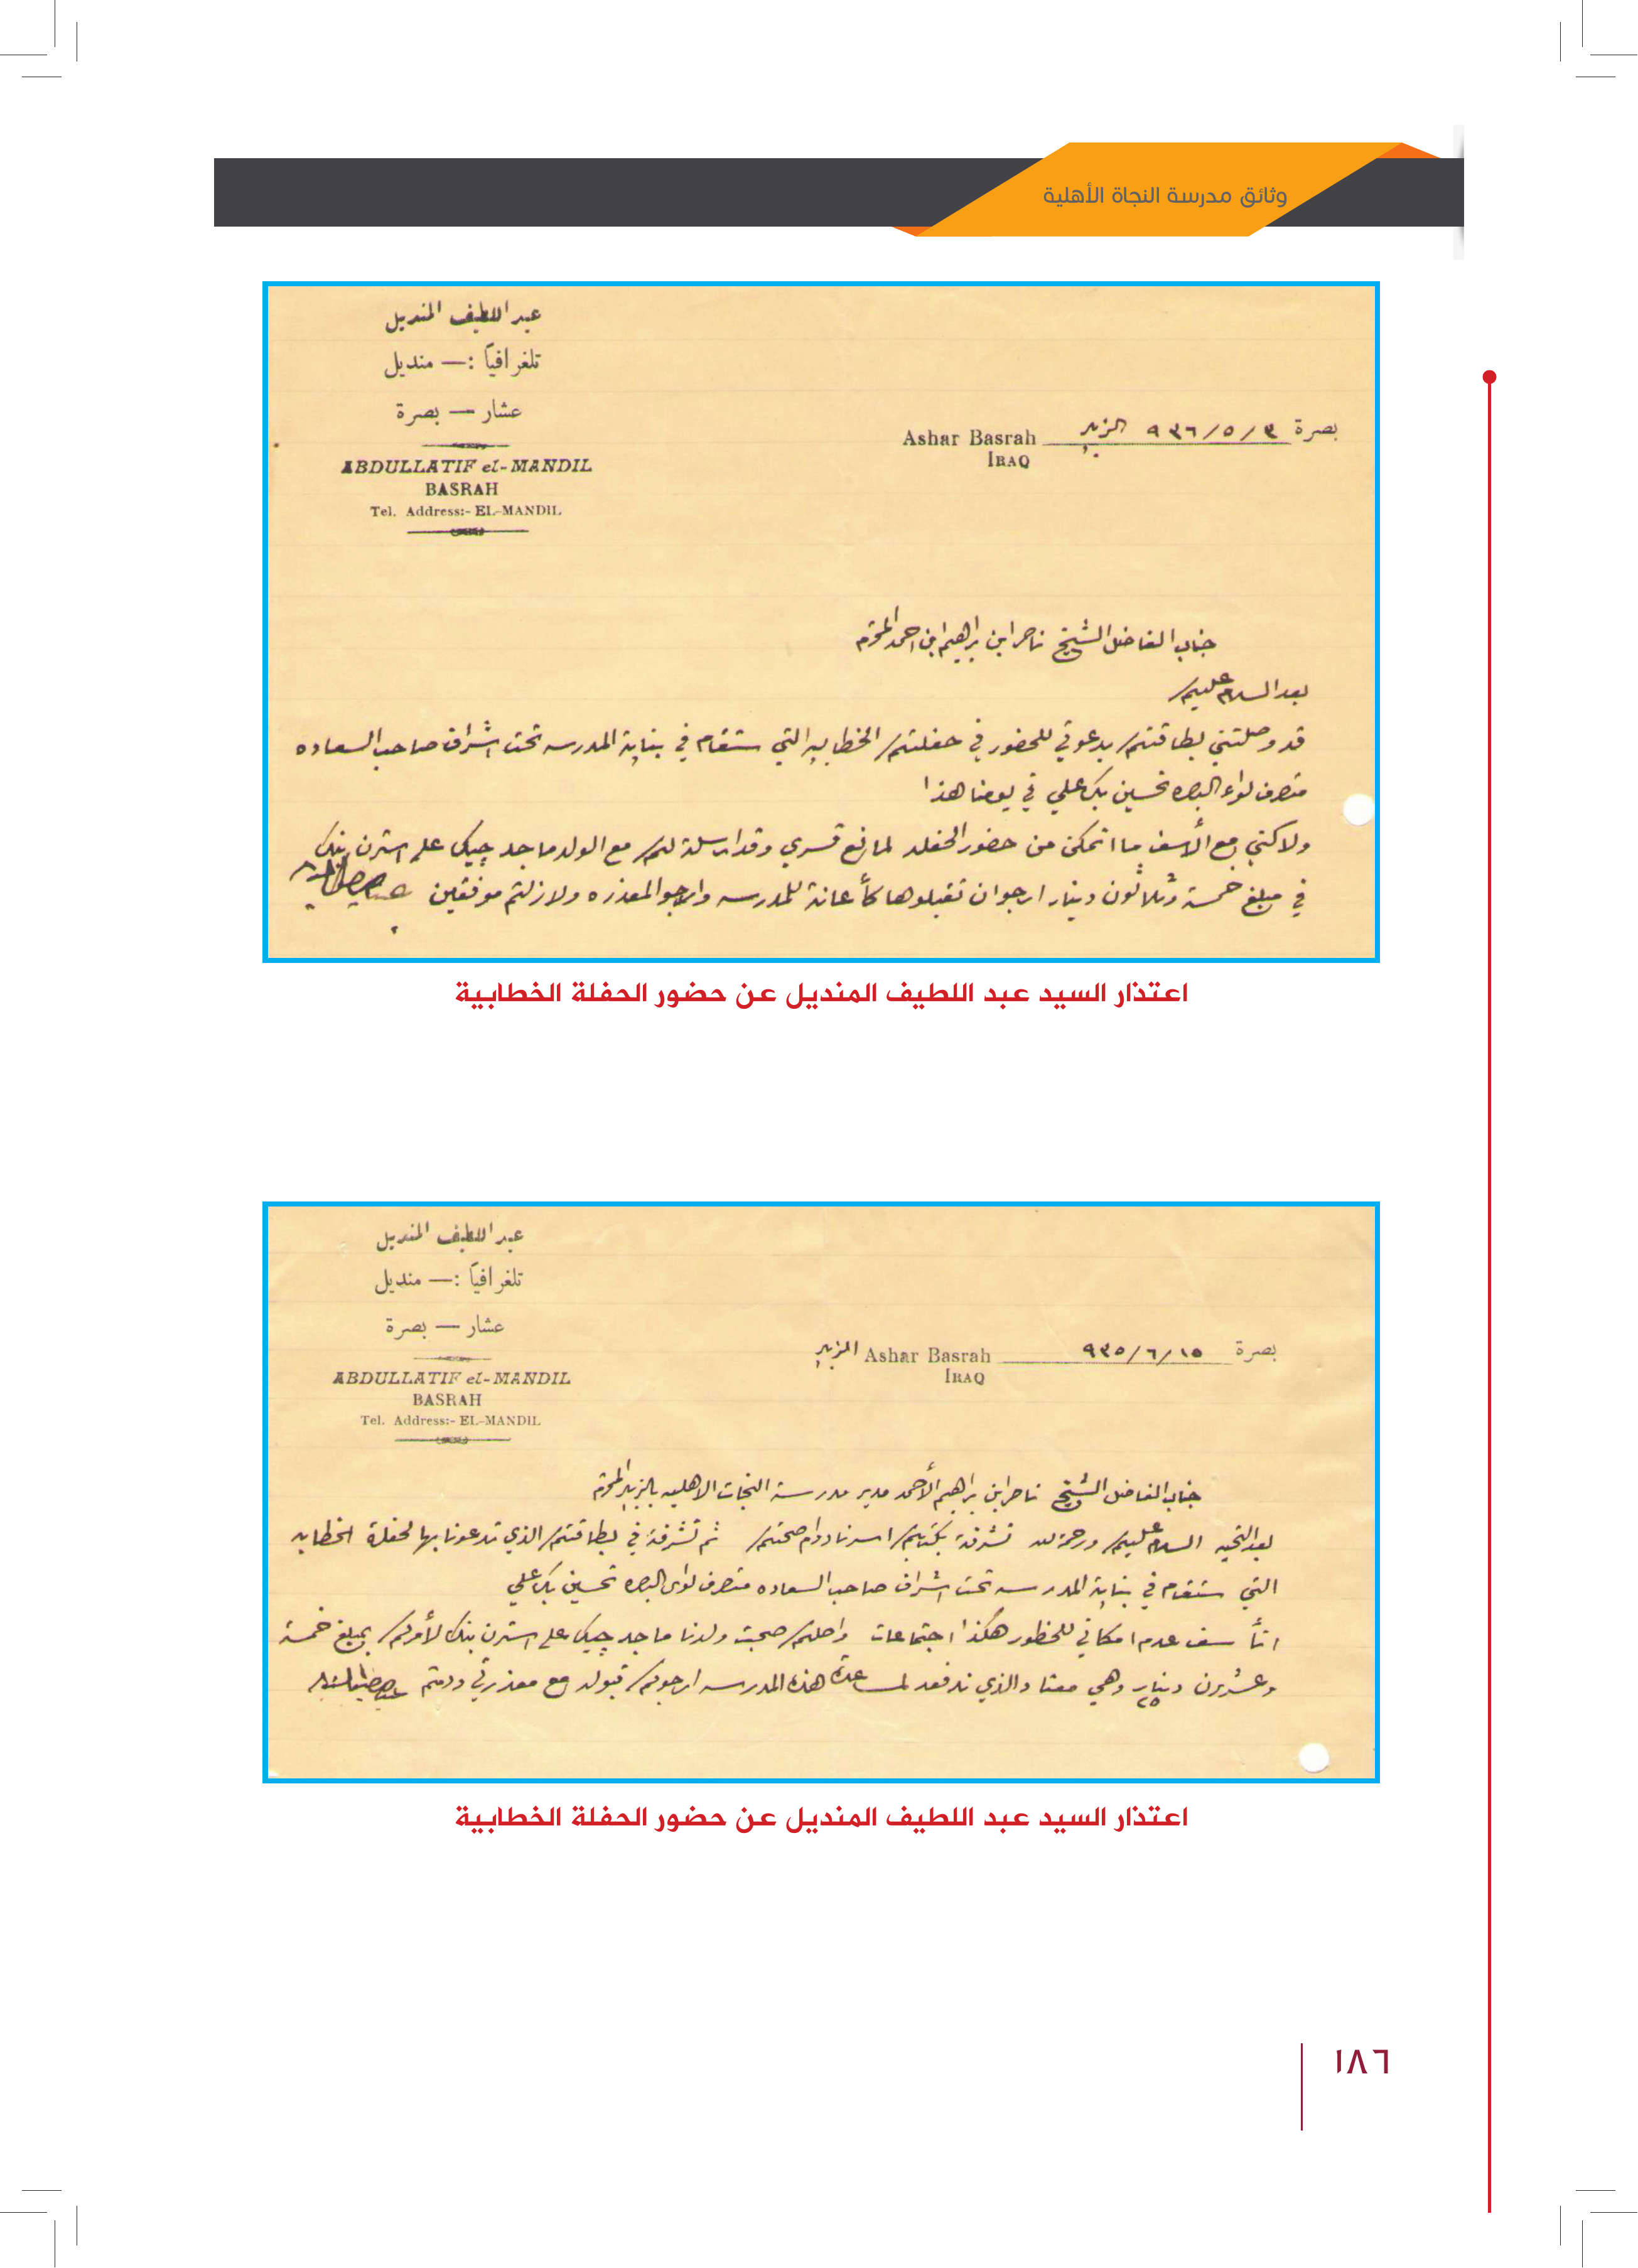 وثائق مدرسة النجاة الأهلية
عبد اللطيف المنديل
تلغرافياً :— منديل
عشار — بصرة
ABDULLATIF el-MANDIL
BASRAH
Tel. Address:- EL-MANDIL
بصرة ٣ / ٥ / ٩٣٦ الزبير Ashar Basrah
IRAQ
جناب الفاضل الشيخ ناصر ابن ابراهيم ابن احمد المحترم
بعد السلام عليكم
قد وصلتني بطاقتكم بدعوتي للحضور في حفلتكم الخطابيه التي ستقام في بناية المدرسه تحت اشراف صاحب السعاده
متصرف لواء البصره تحسين بك علي في يومنا هذا
ولاكني مع الأسف ما اتمكن من حضور الحفله لمانع قسري وقد ارسلة لكم مع الولد ماجد چيك على استرن بنك
في مبلغ خمسة وثلاثون دينار ارجو ان تقبلوها كأعانة للمدرسه وارجو المعذره ولازلتم موفقين
اعتذار السيد عبد اللطيف المنديل عن حضور الحفلة الخطابية
عبد اللطيف المنديل
تلغرافياً :— منديل
عشار — بصرة
ABDULLATIF el-MANDIL
BASRAH
Tel. Address:- EL-MANDIL
بصرة ١٥ / ٦ / ٩٣٥ Ashar Basrah الزبير
IRAQ
جناب الفاضل الشيخ ناصر ابن ابراهيم الأحمد مدير مدرسة النجات الاهليه بالزبير المحترم
بعد التحيه السلام عليكم ورحمة الله تشرفة بكتابكم اسرنا دوام صحتكم ثم تشرفة في بطاقتكم الذي تدعونا بها لحفلة الخطابه
التي ستقام في بناية المدرسه تحت اشراف صاحب السعاده متصرف لواى البصره تحسين بك علي
اتأسف عدم امكاني للحظور هكذا اجتماعات واصلكم صحبت ولدنا ماجد چيك على استرن بنك لأمركم بمبلغ خمسة
وعشرين دينار ٢٥ وهي معتاد الذي ندفعه لمساعدة هذه المدرسه ارجوكم قبوله مع معذرتي ودمتم
اعتذار السيد عبد اللطيف المنديل عن حضور الحفلة الخطابية
١٨٦